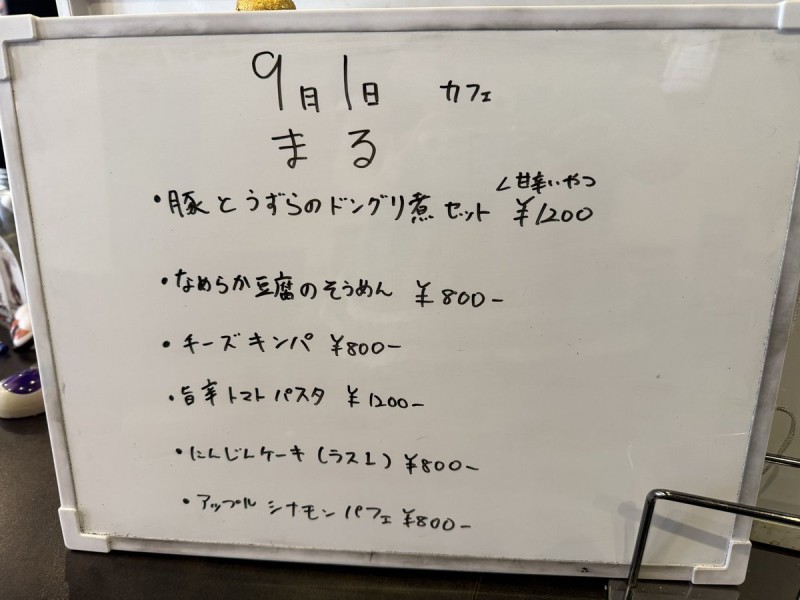 9月1日 カフェ
まる
く甘辛いやつ
・豚とうずらのドングリ煮セット ¥1200
・なめらか豆腐のそうめん ¥800-
・チーズキンパ ¥800-
・旨辛トマトパスタ ¥1200-
・にんじんケーキ(ラス1) ¥800-
・アップルシナモンパフェ ¥800-